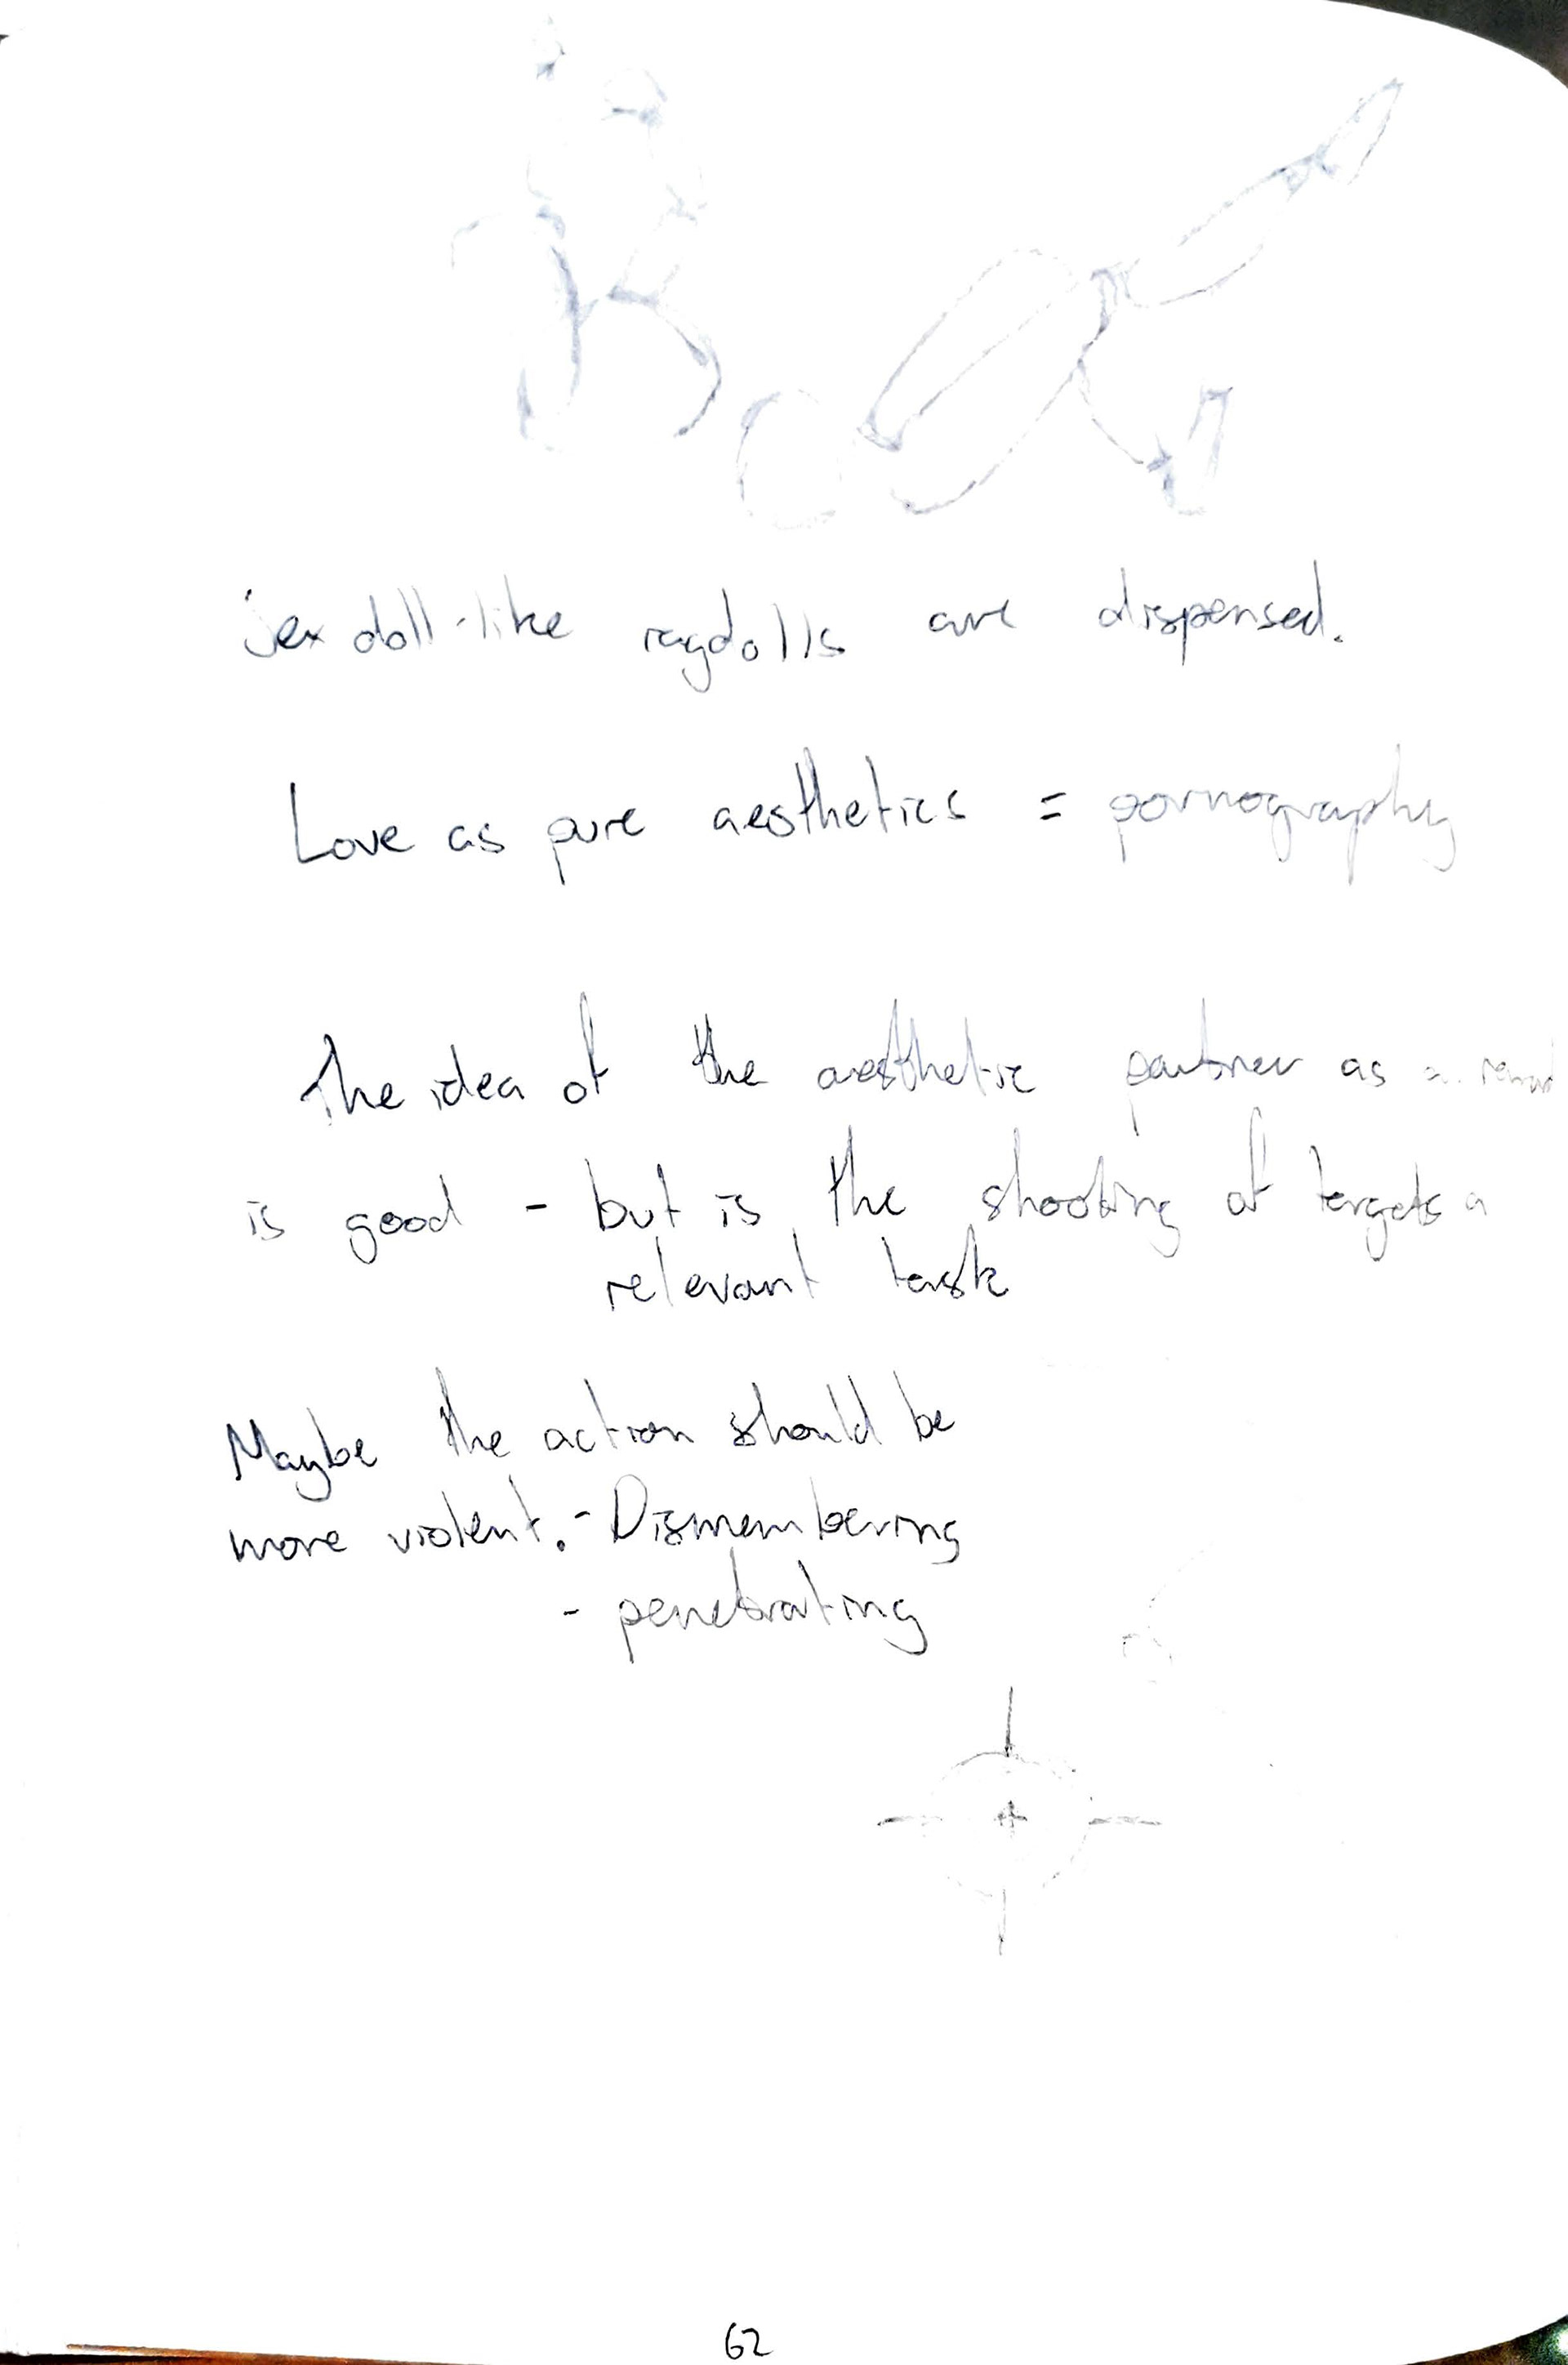 Sex doll-like ragdolls are dispensed.
Love as pure aesthetics = pornography
The idea of the aesthetic partner as a reward
is good - but is the shooting of targets a
relevant task
Maybe the action should be
more violent. - Dismembering
- penetrating
62